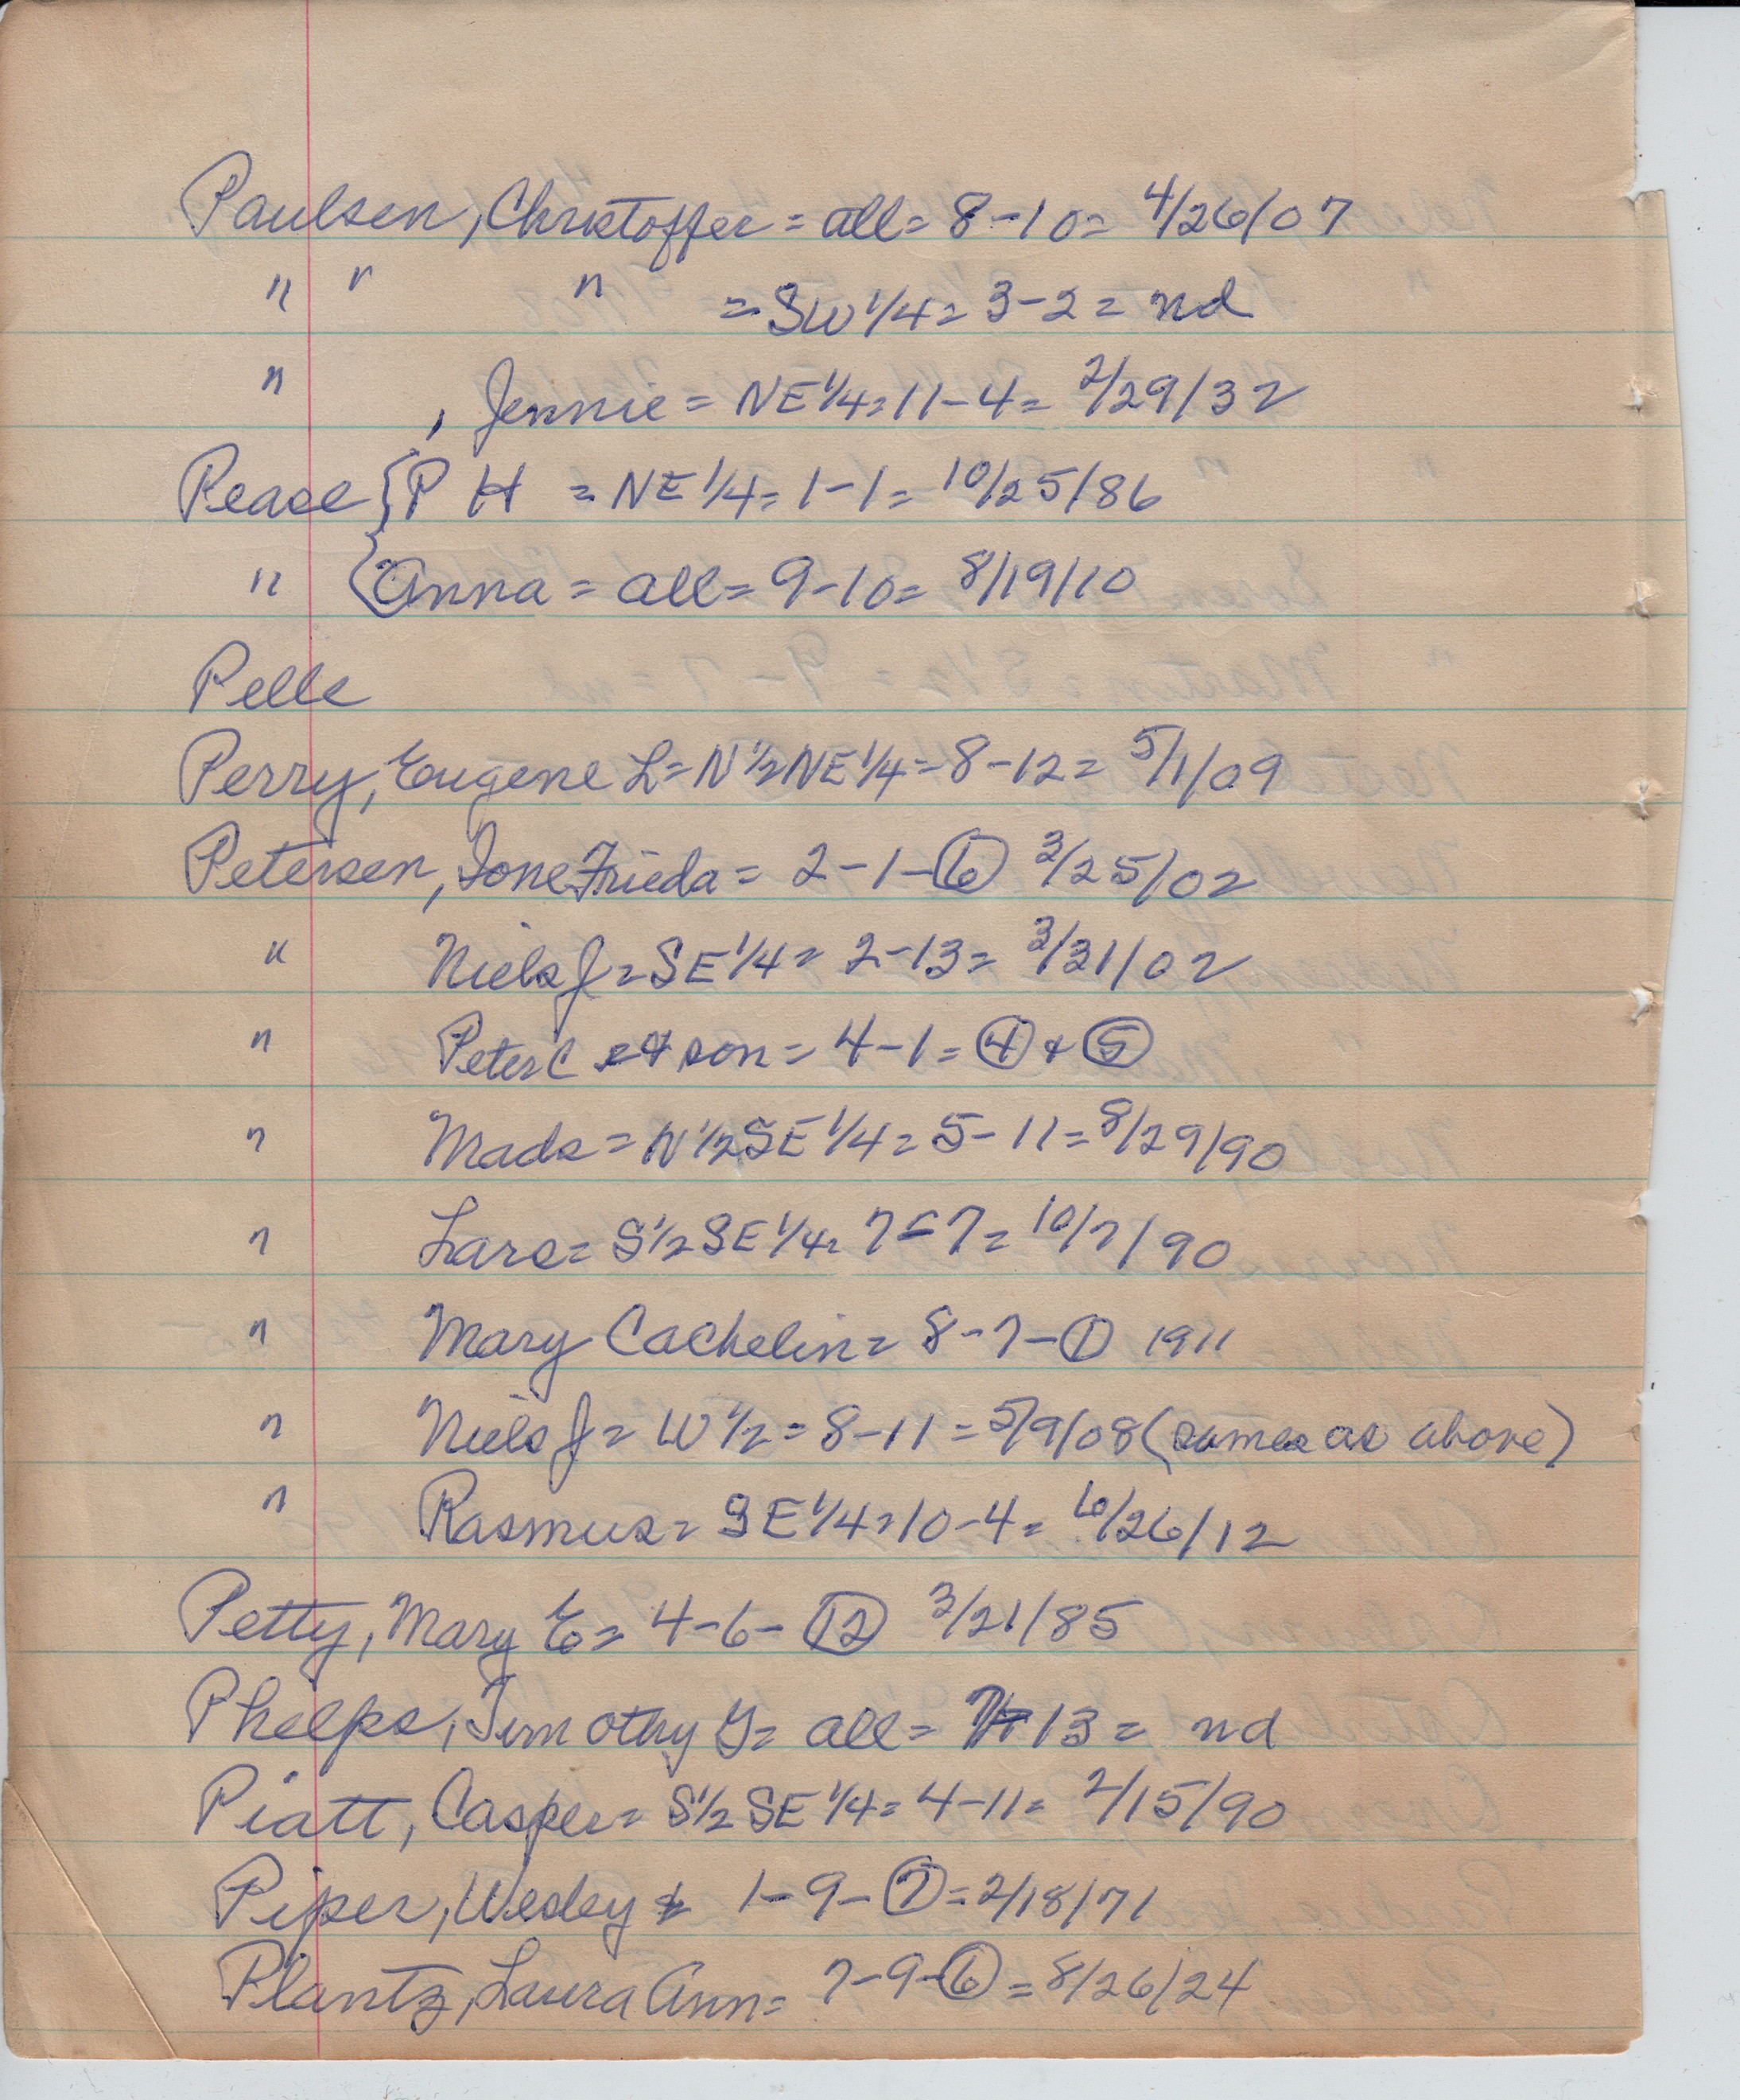 Paulsen, Christoffer = all = 8-10 = 4/26/07
" " " = SW 1/4 = 3-2 = nd
" , Jennie = NE 1/4 = 11-4 = 2/29/32
Pease { P H = NE 1/4 = 1-1 = 10/25/86
" { Anna = all = 9-10 = 8/19/10
Pelle
Perry, Eugene L = N 1/2 NE 1/4 = 8-12 = 5/1/09
Petersen, Ione Frieda = 2-1-⑥ 3/25/02
" Niels J = SE 1/4 = 2-13 = 3/31/02
" Peter C + son = 4-1 = ④ + ⑤
" Mads = N 1/2 SE 1/4 = 5-11 = 8/29/90
" Lars = S 1/2 SE 1/4 = 7-7 = 10/7/90
" Mary Cachelin = 8-7-① 1911
" Niels J = W 1/2 = 8-11 = 5/9/08 (same as above)
" Rasmus = SE 1/4 = 10-4 = 6/26/12
Petty, Mary E = 4-6-⑫ 3/21/85
Phelps, Timothy G = all = 7-13 = nd
Piatt, Casper = S 1/2 SE 1/4 = 4-11 = 2/15/90
Piper, Wesley 1-9-⑦ = 2/18/71
Plantz, Laura Ann = 7-9-⑥ = 8/26/24